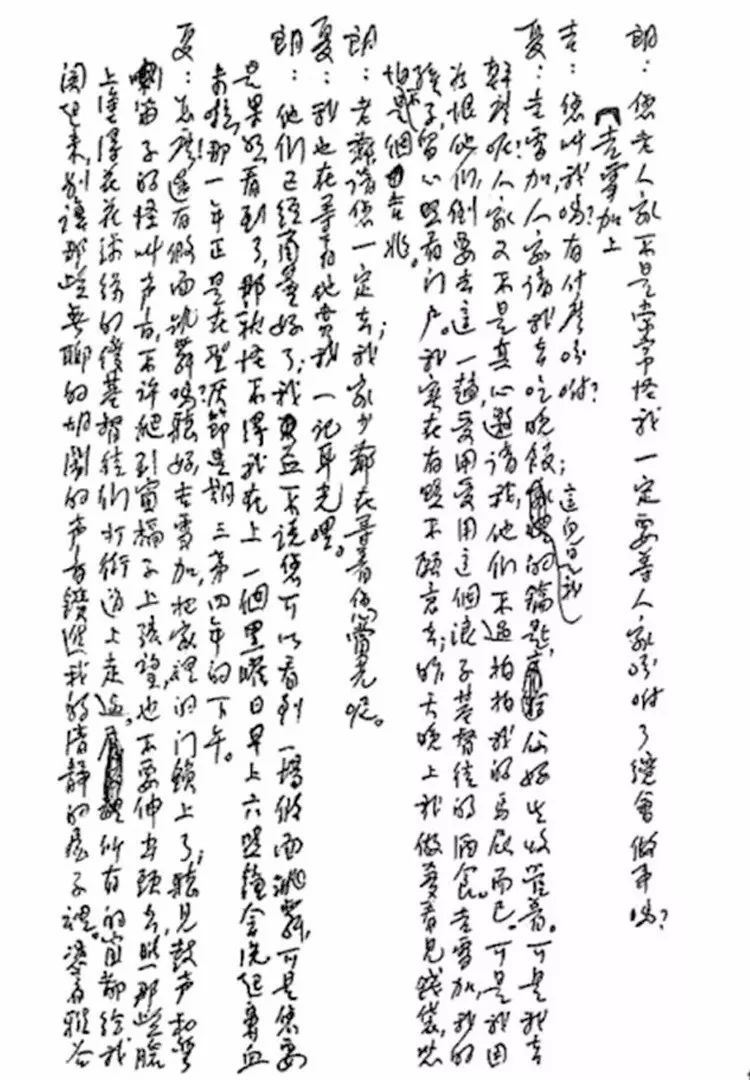 朗：您老人家不是常常怪我一定要等人家吩咐了纔會做事嗎？
吉雪加上
吉：您叫我嗎？有什麼吩咐？
夏：吉雪加，人家請我去吃晚飯；這兒是我的鑰匙，你好生收管着。可是我去
幹麼呢？人家又不是真心邀請我，他們不過拍拍我的馬屁而已。可是我因
為恨他們，倒要去這一趟，受用受用這個浪子基督徒的酒食。吉雪加，我的
孩子，留心照看門户。我實在有點不願意去；昨天晚上我做夢看見錢袋，恐
怕不是個吉兆。
朗：老爺，請您一定去；我家少爺在等着您賞光呢。
夏：我也在等着他賞我一記耳光哩。
朗：他們已經商量好了；我並不說您可以看到一場假面跳舞，可是您要
是果然看到了，那就怪不得我在上一個黑曜日早上六點鐘會流起鼻血
來啦，那一年正是在聖灰節星期三第四年的下午。
夏：怎麼！還有假面跳舞嗎？聽好，吉雪加，把家裡的門鎖上了；聽見鼓聲和彎
喇笛子的怪叫声音，不許爬到窗槅子上張望，也不要伸出頭去，瞧那些臉
上塗得花花綠綠的傻基督徒們打街道上走過。把我這屋子所有的窗都給我
關起來，别讓那些無聊的胡鬧的声音鑽進我的清静的屋子裡。憑着雅各